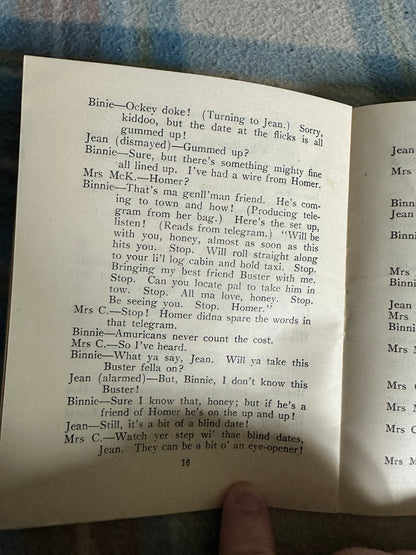 Binie—Ockey doke! (Turning to Jean.) Sorry,
kiddoo, but the date at the flicks is all
gummed up!
Jean (dismayed)—Gummed up?
Binnie—Sure, but there's something mighty fine
all lined up. I've had a wire from Homer.
Mrs McK.—Homer?
Binnie—That's ma genll'man friend. He's com-
ing to town and how! (Producing tele-
gram from her bag.) Here's the set up,
listen! (Reads from telegram.) "Will be
with you, honey, almost as soon as this
hits you. Stop. Will roll straight along
to your li'l log cabin and hold taxi. Stop.
Bringing my best friend Buster with me.
Stop. Can you locate pal to take him in
tow. Stop. All ma love, honey. Stop.
Be seeing you. Stop. Homer."
Mrs C.—Stop! Homer didna spare the words in
that telegram.
Binnie—Amuricans never count the cost.
Mrs C.—So I've heard.
Binnie—What ya say, Jean. Will ya take this
Buster fella on?
Jean (alarmed)—But, Binnie, I don't know this
Buster!
Binnie—Sure I know that, honey; but if he's a
friend of Homer he's on the up and up!
Jean—Still, it's a bit of a blind date!
Mrs C.—Watch yer step wi' thae blind dates,
Jean. They can be a bit o' an eye-opener!
16
Jean
Mrs
Binni
Jean
Binni
Mrs
Binni
Jean
Mrs
Binni
Mrs
Mrs C
Mrs C
Mrs M